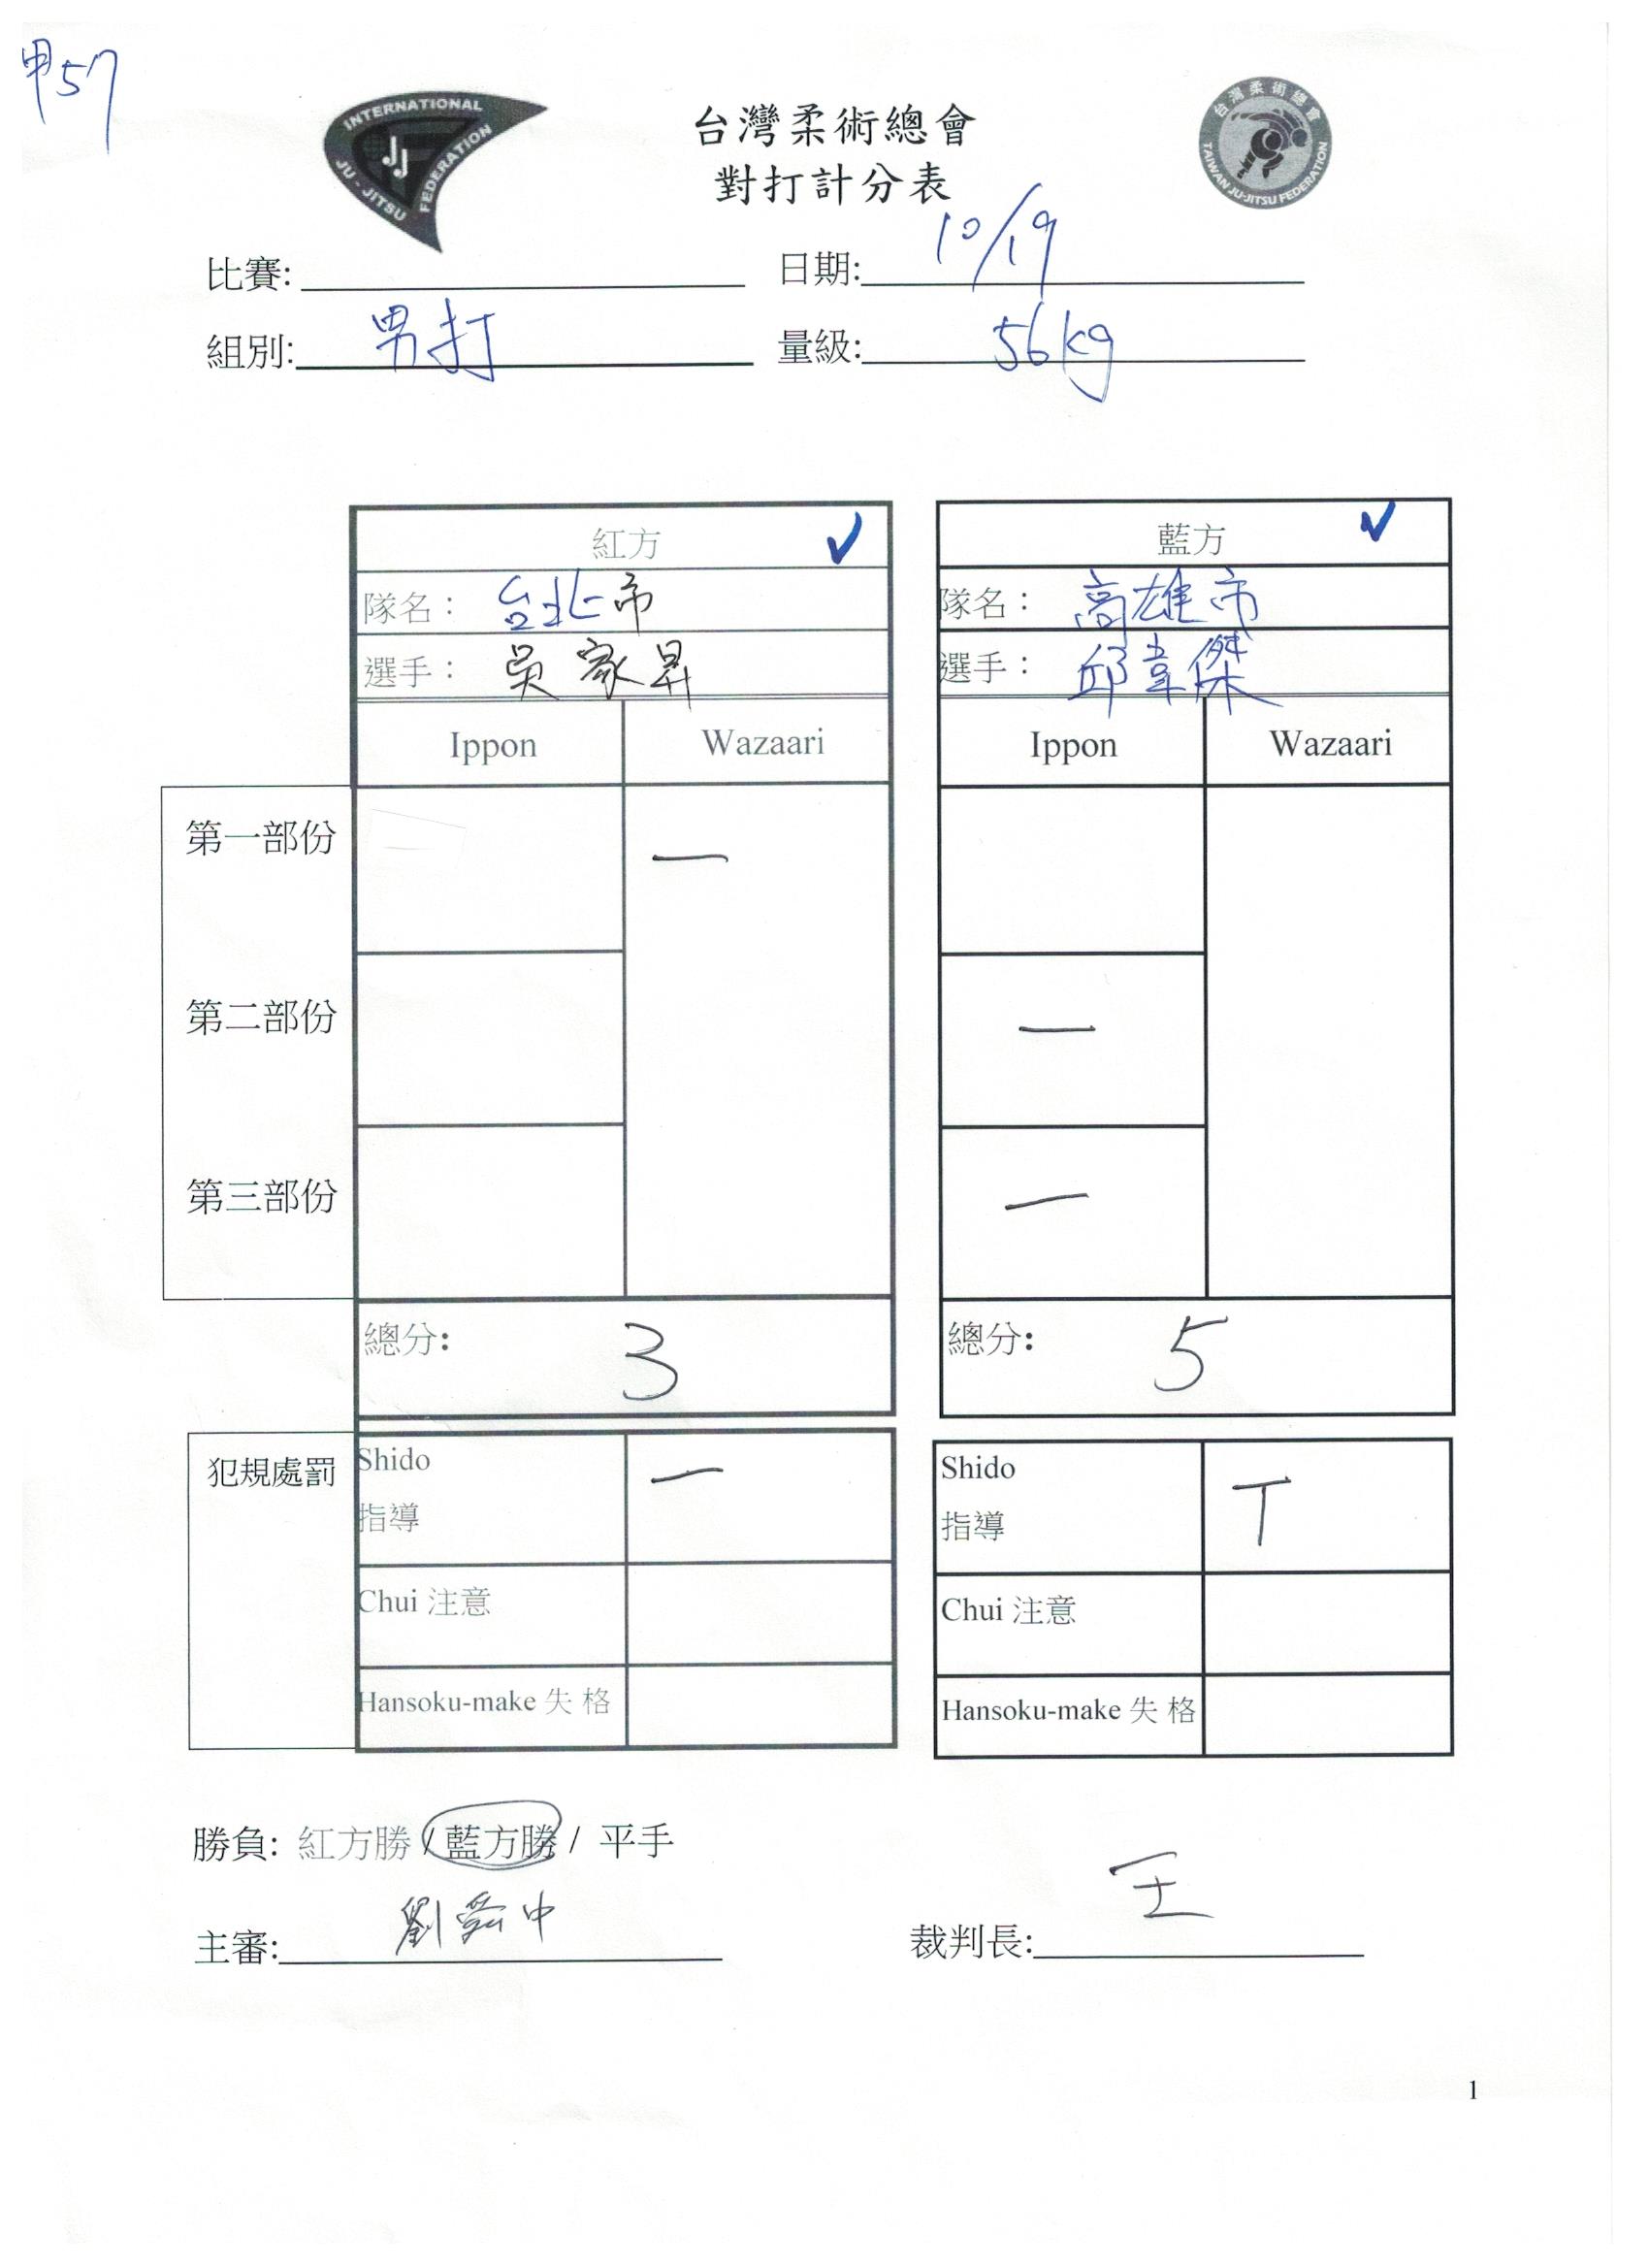 甲57
INTERNATIONAL
JJ
JU-JITSU FEDERATION
台灣柔術總會
TAIWAN JU-JITSU FEDERATION
台灣柔術總會
對打計分表
比賽: 日期: 10/19
組別: 男打 量級: 56kg
紅方 ✓ 藍方 ✓
隊名: 台北市 隊名: 高雄市
選手: 吳家昇 選手: 邱韋傑
Ippon Wazaari Ippon Wazaari
第一部份 一
第二部份 一
第三部份 一
總分: 3 總分: 5
犯規處罰 Shido 一 Shido T
指導 指導
Chui 注意 Chui 注意
Hansoku-make 失 格 Hansoku-make 失 格
勝負: 紅方勝 / 藍方勝 / 平手
主審: 劉 中 裁判長: 王
1